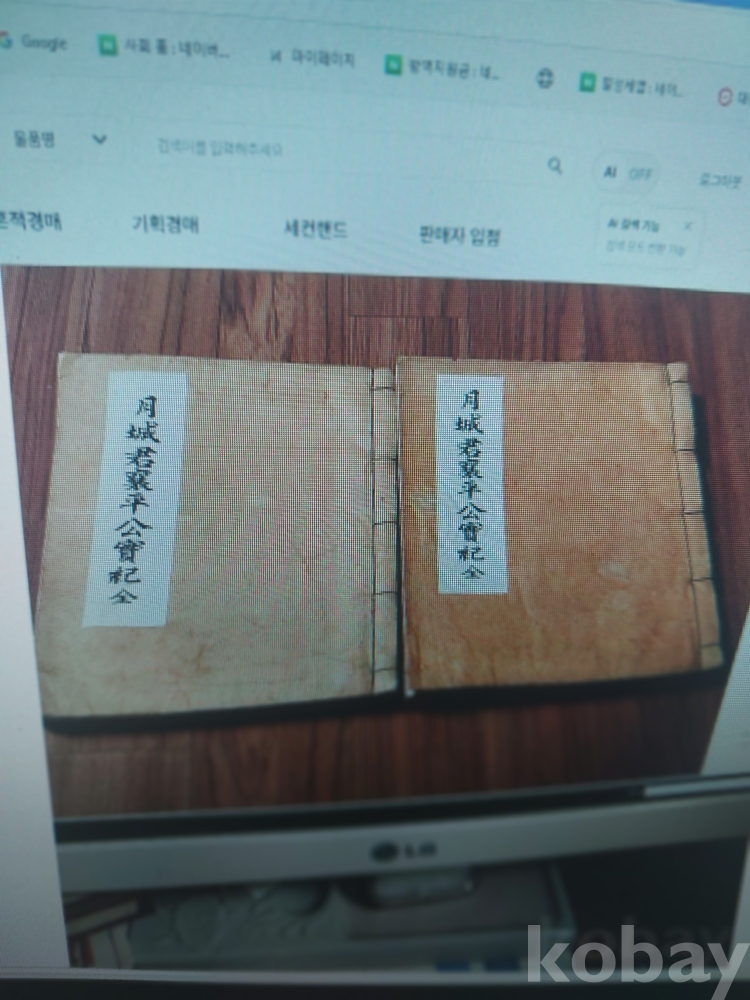 Google
사회 홈 : 네이버...
마이페이지
물품명
검색어를 입력해주세요
AI OFF
로그아웃
흔적경매
기획경매
세컨핸드
판매자 입점
AI 검색 기능
月城君襄平公實紀全
月城君襄平公實紀全
LG
kobay